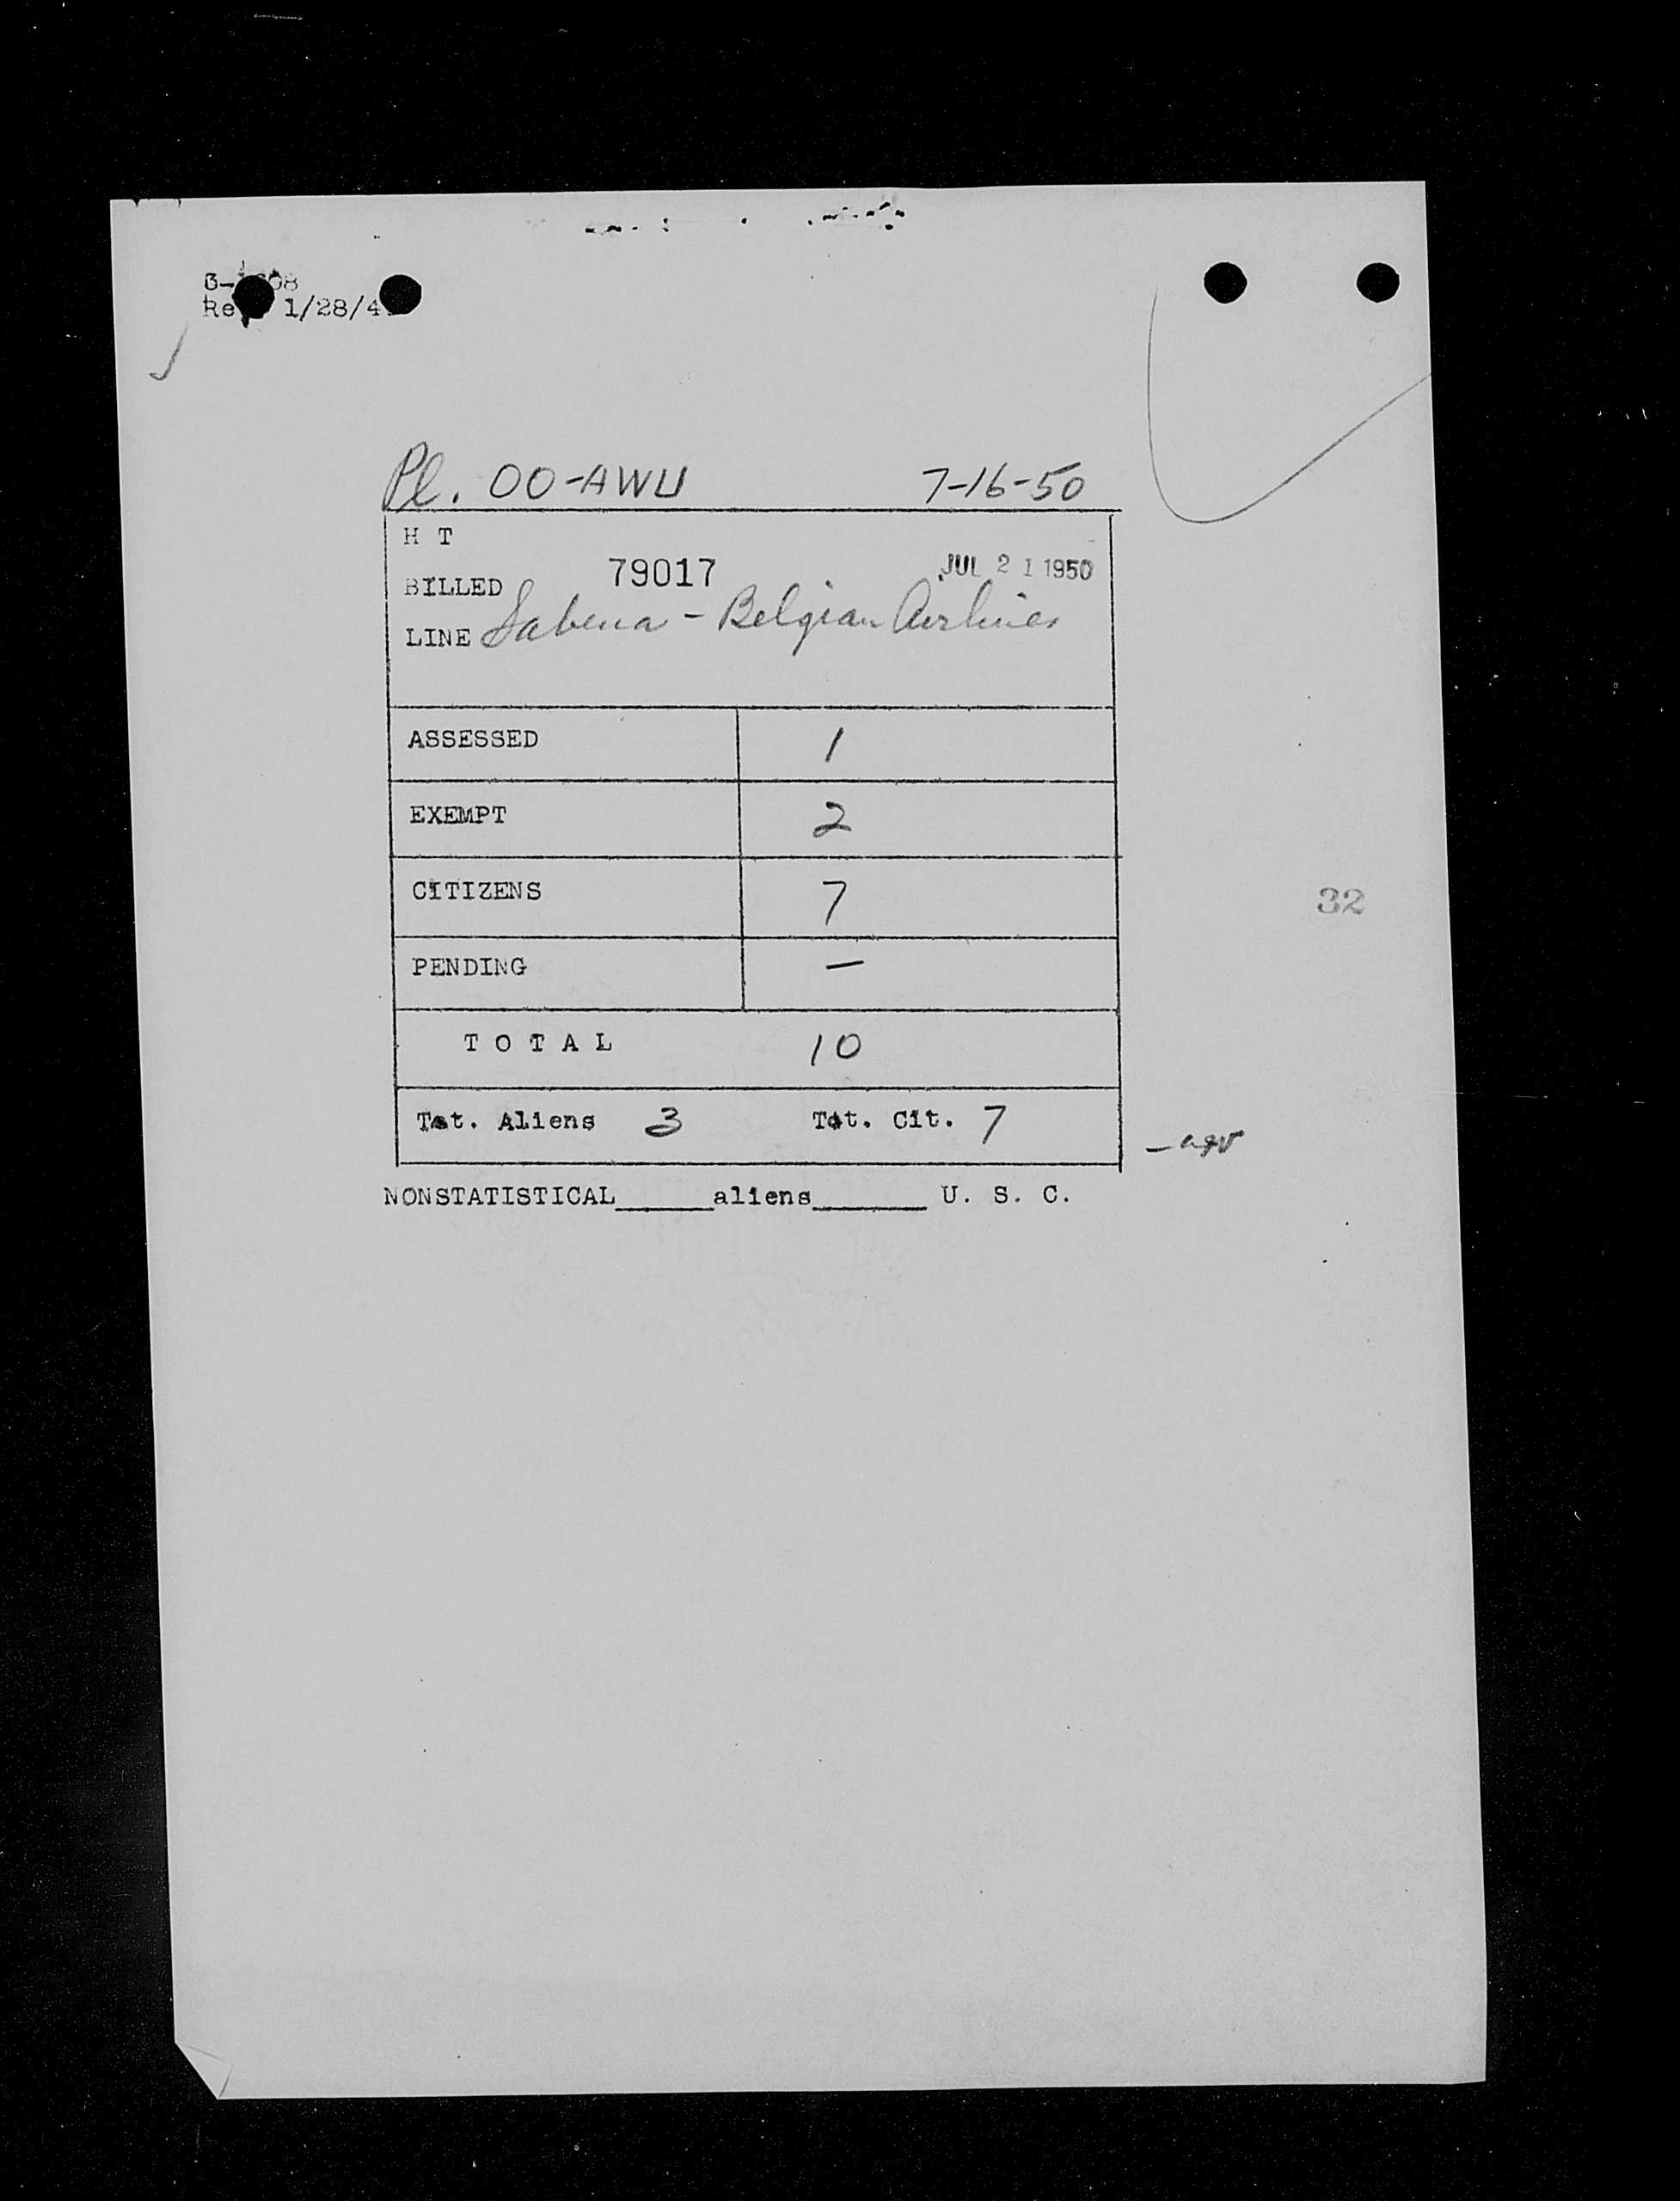 1/28/4
Pl. OO-AWU 7-16-50
H T
79017 JUL 21 1950
BILLED
LINE Sabena - Belgian Airlines
ASSESSED 1
EXEMPT 2
CITIZENS 7
32
PENDING —
TOTAL 10
Tot. Aliens 3 Tot. Cit. 7
NONSTATISTICAL______aliens_______ U. S. C.